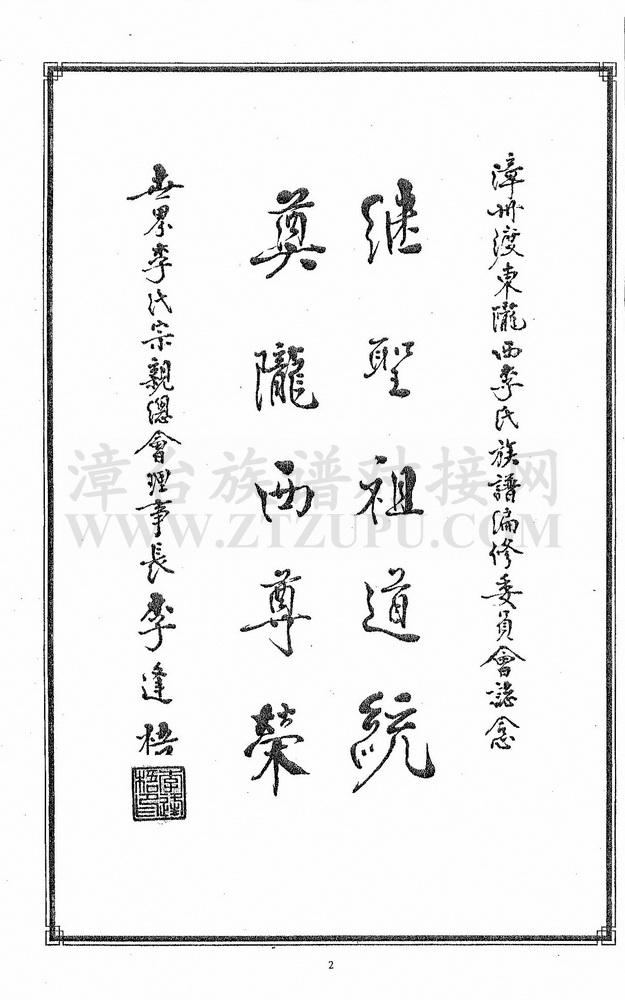 漳州渡東隴西李氏族譜編修委員會誌念
继聖祖道統
奠隴西尊榮
世界李氏宗親總會理事長李逢梧
李逢梧印
漳台族谱对接网
WWW.ZTZUPU.COM
2